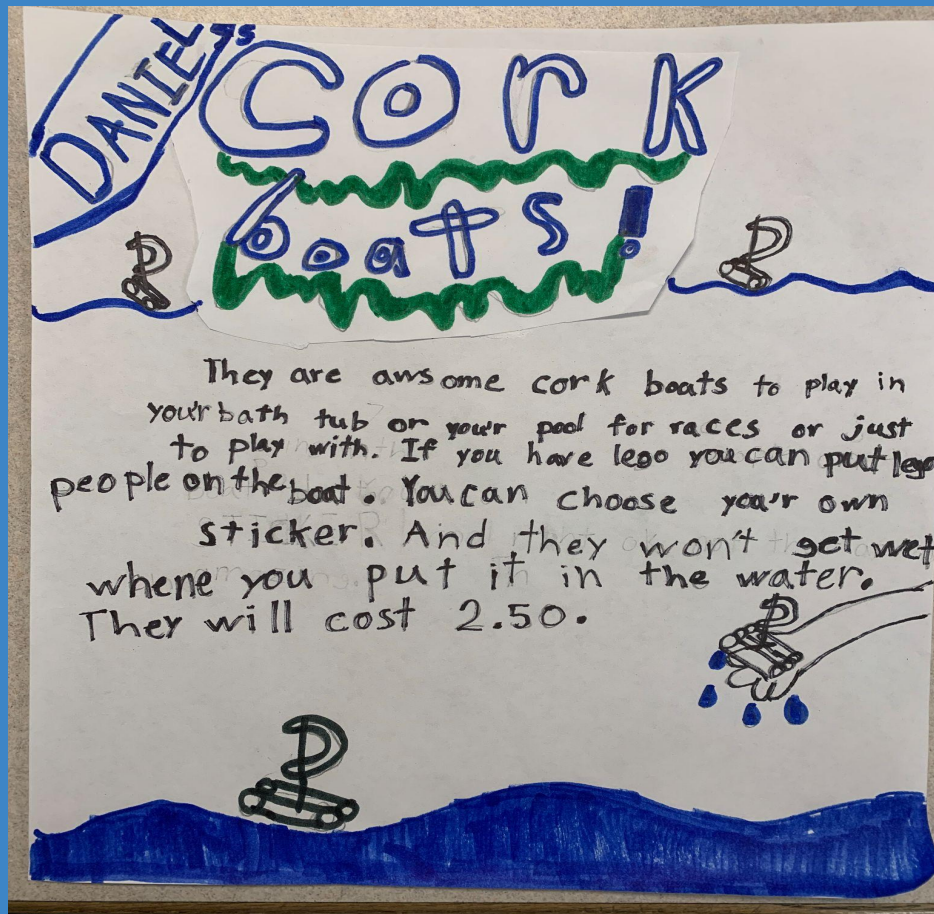 DANIEL'S
Cork
boats!
They are awsome cork boats to play in
your'bath tub or your'r pool for races or just
to play with. If you have lego you can put lego
people on the boat. You can choose you'r own
sticker. And they won't get wet
whene you put it in the water.
They will cost 2.50.